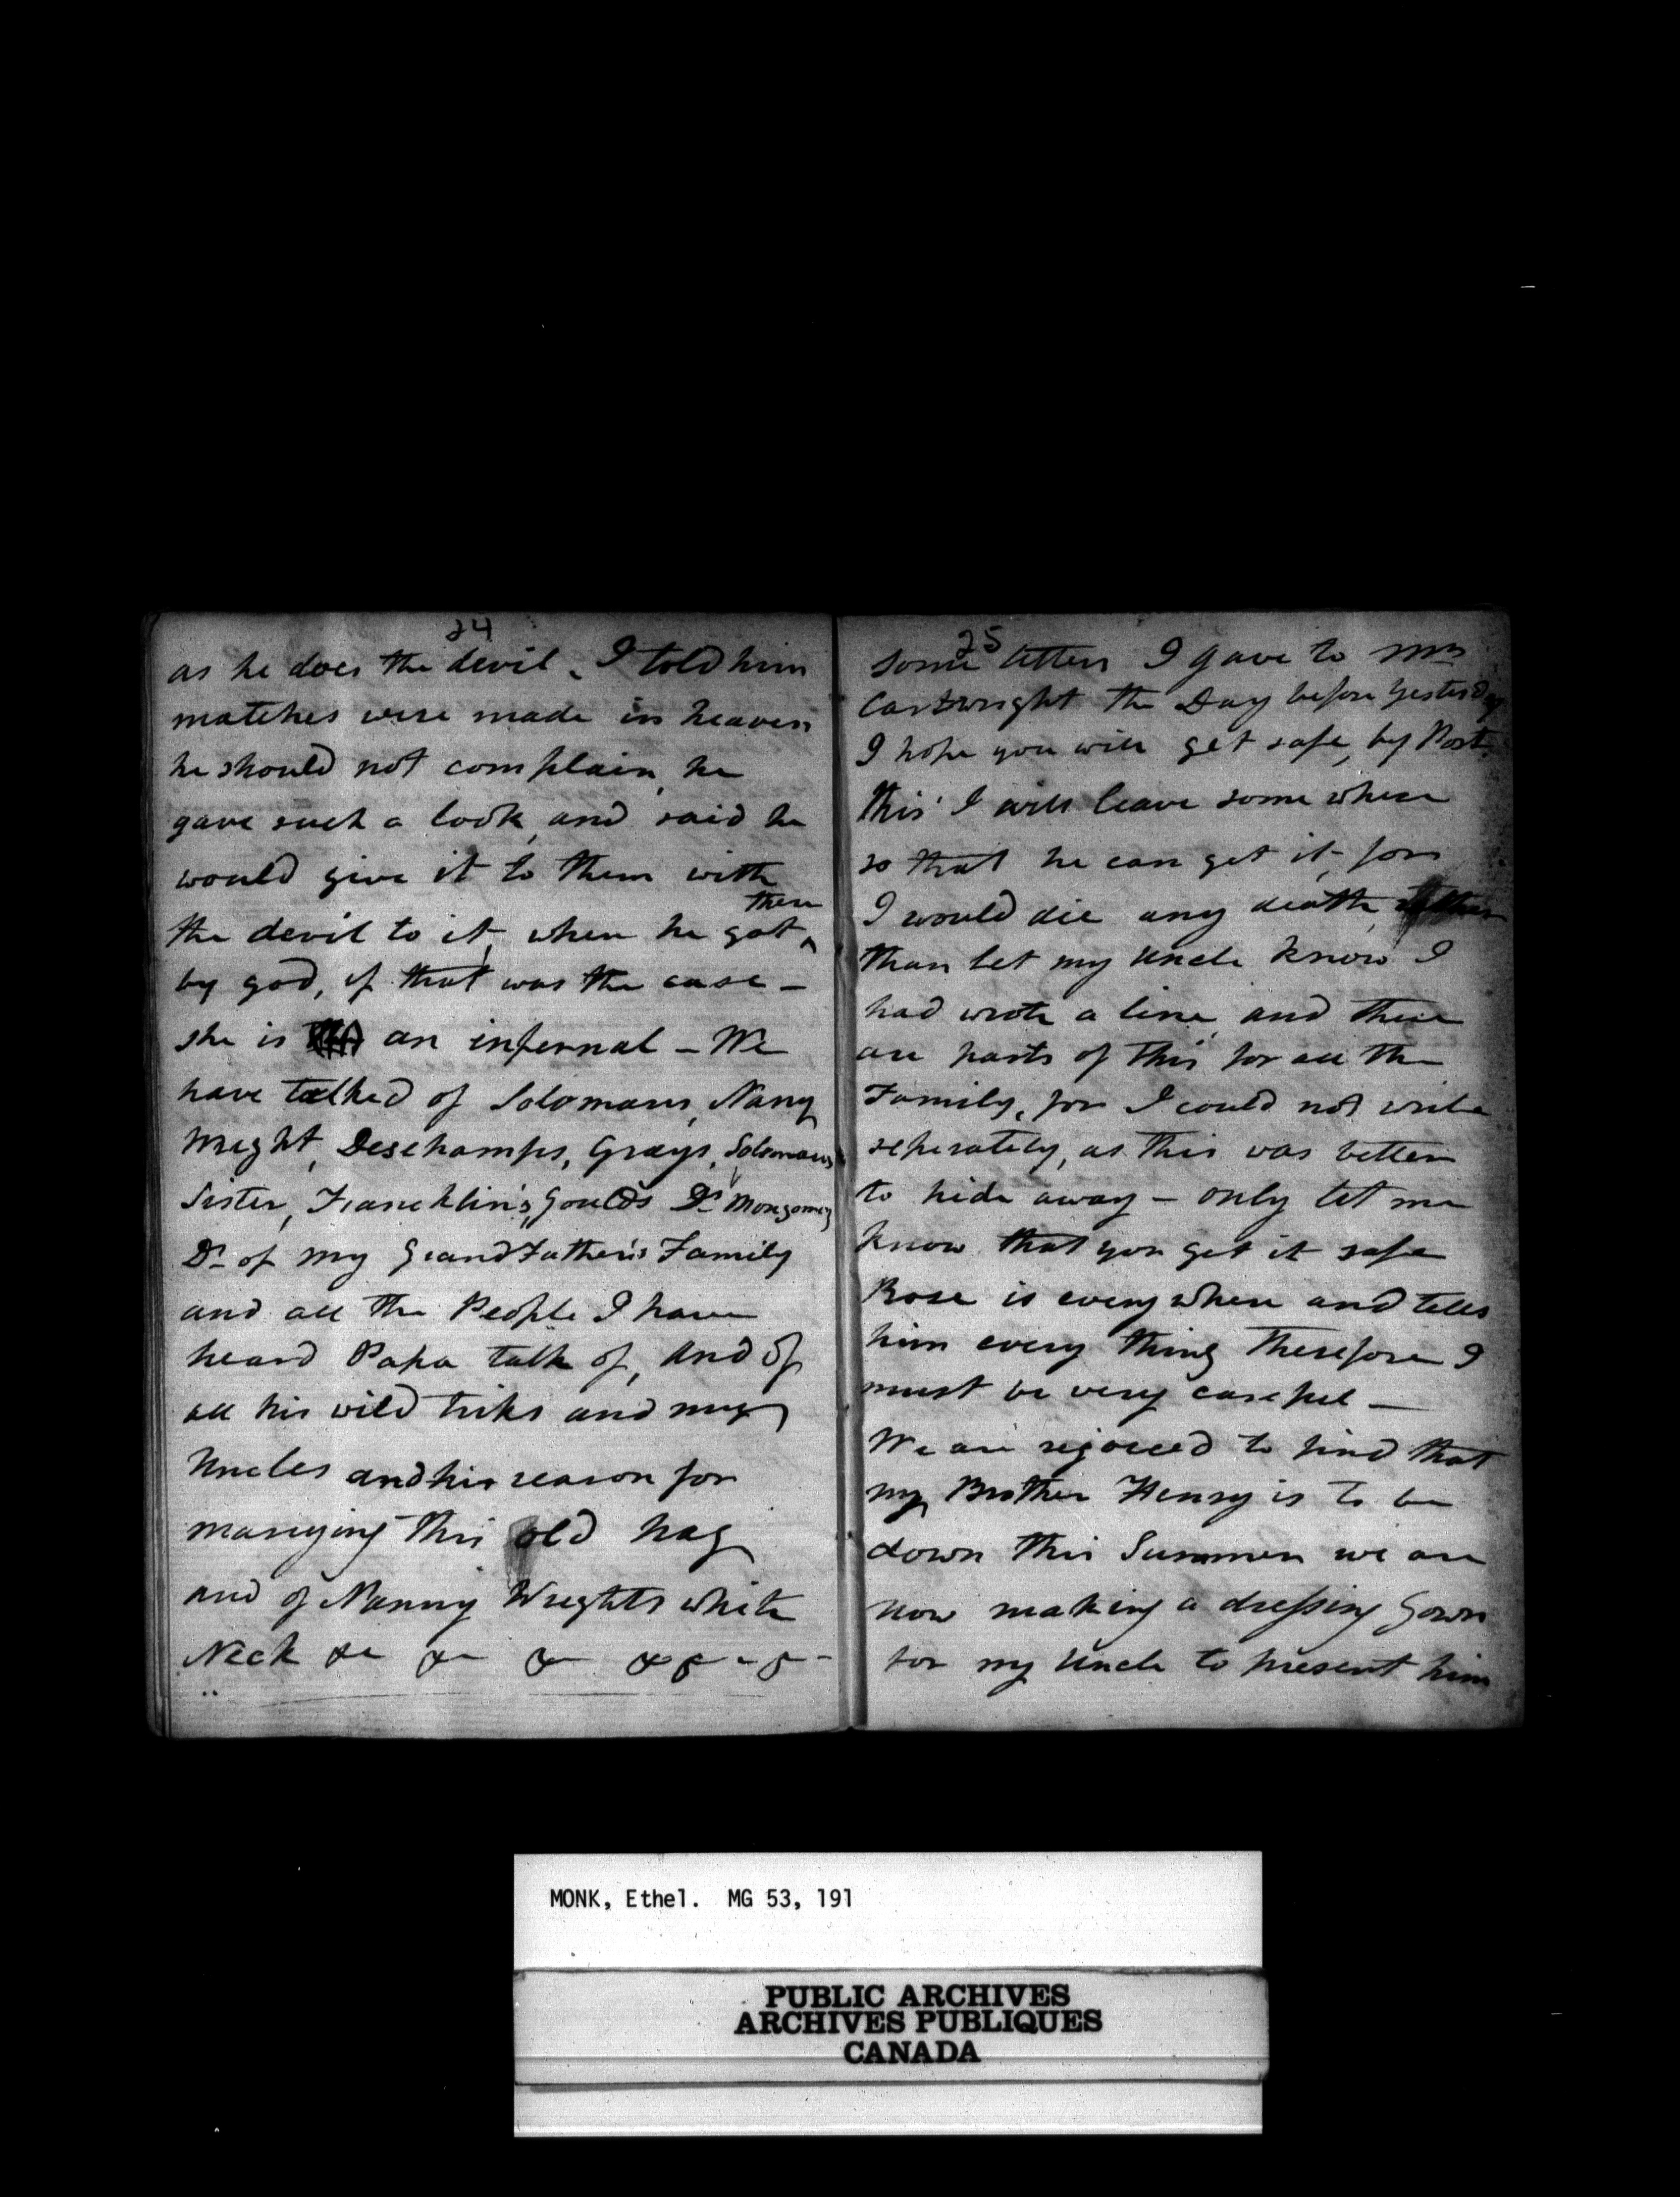 24
as he does the devil. I told him
matches were made in heaven
he should not complain, he
gave such a look, and said he
would give it to them with
the devil to it, when he got there
by god, if that was the case -
she is an infernal - We
have talked of Solomans, Nany
Wright, Deschamps, Grays, Solomans
Sister, Francklin's, Goulds Dr Mongomey
Dr of my Grand Father's Family
and all the People I have
heard Papa talk of, and of
all his wild triks and my
Uncles and his reason for
marrying this old hag
and of Nanny Wrights white
Neck &c &c &c
25
some letters I gave to Mrs
Cartwright the Day before Yesterday
I hope you will get safe, by Post
this I will leave some where
so that he can get it, for
I would die any death, rather
than let my Uncle know I
had wrote a line, and there
are parts of this for all the
Family, for I could not write
seperately, as this was better
to hide away - only let me
know that you get it safe
Rose is every where and tells
him every thing therefore I
must be very careful -
We are rejoiced to find that
my Brother Henry is to be
down this Summer we are
now making a dressing Gown
for my Uncle to present him
MONK, Ethel. MG 53, 191
PUBLIC ARCHIVES
ARCHIVES PUBLIQUES
CANADA